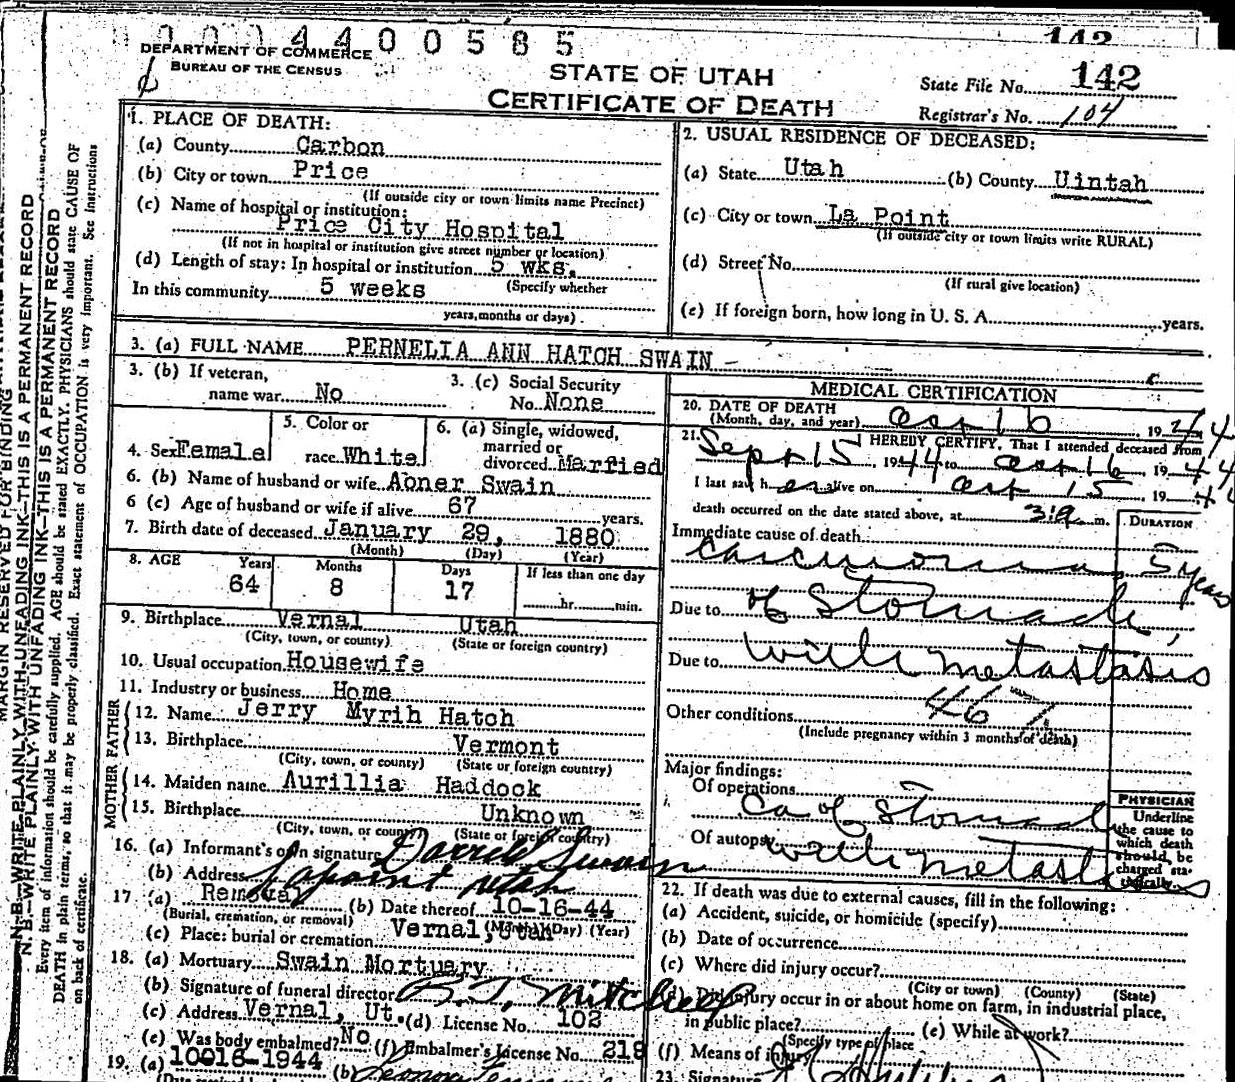 0 0 0 4 4 0 0 5 8 5
142
DEPARTMENT OF COMMERCE
BUREAU OF THE CENSUS
STATE OF UTAH
CERTIFICATE OF DEATH
State File No. 142
Registrar's No. 104
MARGIN RESERVED FOR BINDING
N. B.—WRITE PLAINLY WITH UNFADING INK—THIS IS A PERMANENT RECORD
N. B.—WRITE PLAINLY WITH UNFADING INK—THIS IS A PERMANENT RECORD
Every item of information should be carefully supplied. AGE should be stated EXACTLY. PHYSICIANS should state CAUSE OF
DEATH in plain terms, so that it may be properly classified. Exact statement of OCCUPATION is very important. See Instructions
on back of certificate.
1. PLACE OF DEATH:
(a) County Carbon
(b) City or town Price
(If outside city or town limits name Precinct)
(c) Name of hospital or institution:
Price City Hospital
(If not in hospital or institution give street number or location)
(d) Length of stay: In hospital or institution 5 wks.
(Specify whether
In this community 5 weeks
years, months or days)
2. USUAL RESIDENCE OF DECEASED:
(a) State Utah (b) County Uintah
(c) City or town La Point
(If outside city or town limits write RURAL)
(d) Street No.
(If rural give location)
(e) If foreign born, how long in U. S. A. years.
3. (a) FULL NAME PERNELIA ANN HATCH SWAIN
3. (b) If veteran,
name war No
3. (c) Social Security
No. None
4. Sex Female
5. Color or
race White
6. (a) Single, widowed,
married or
divorced Married
6. (b) Name of husband or wife Abner Swain
6 (c) Age of husband or wife if alive 67 years.
7. Birth date of deceased January 29, 1880
(Month) (Day) (Year)
8. AGE Years Months Days If less than one day
64 8 17 hr. min.
9. Birthplace Vernal Utah
(City, town, or county) (State or foreign country)
10. Usual occupation Housewife
11. Industry or business Home
FATHER
12. Name Jerry Myrih Hatch
13. Birthplace Vermont
(City, town, or county) (State or foreign country)
MOTHER
14. Maiden name Aurillia Haddock
15. Birthplace Unknown
(City, town, or county) (State or foreign country)
16. (a) Informant's own signature Darrell Swain
(b) Address Lapoint Utah
17 (a) Removal (b) Date thereof 10-16-44
(Burial, cremation, or removal) (Month) (Day) (Year)
(c) Place: burial or cremation Vernal, Utah
18. (a) Mortuary Swain Mortuary
(b) Signature of funeral director
(c) Address Vernal, Ut. (d) License No. 102
(e) Was body embalmed? No (f) Embalmer's License No. 218
19. (a) 10-16-1944 (b)
MEDICAL CERTIFICATION
20. DATE OF DEATH
(Month, day, and year) Oct 16 1944
21. I HEREBY CERTIFY, That I attended deceased from
Sept 15, 1944 to Oct 16 1944
I last saw her alive on Oct 15 1944
death occurred on the date stated above, at m.
DURATION
Immediate cause of death
Carcinoma 5 years
Due to of Stomach,
Due to with metastasis
467
Other conditions
(Include pregnancy within 3 months of death)
Major findings:
Of operations
Ca of Stomach
Of autopsy with metastasis
PHYSICIAN
Underline
the cause to
which death
should, be
charged sta-
tistically.
22. If death was due to external causes, fill in the following:
(a) Accident, suicide, or homicide (specify)
(b) Date of occurrence
(c) Where did injury occur?
(City or town) (County) (State)
(d) Did injury occur in or about home on farm, in industrial place,
in public place? (e) While at work?
(Specify type of place
(f) Means of injury
23. Signature